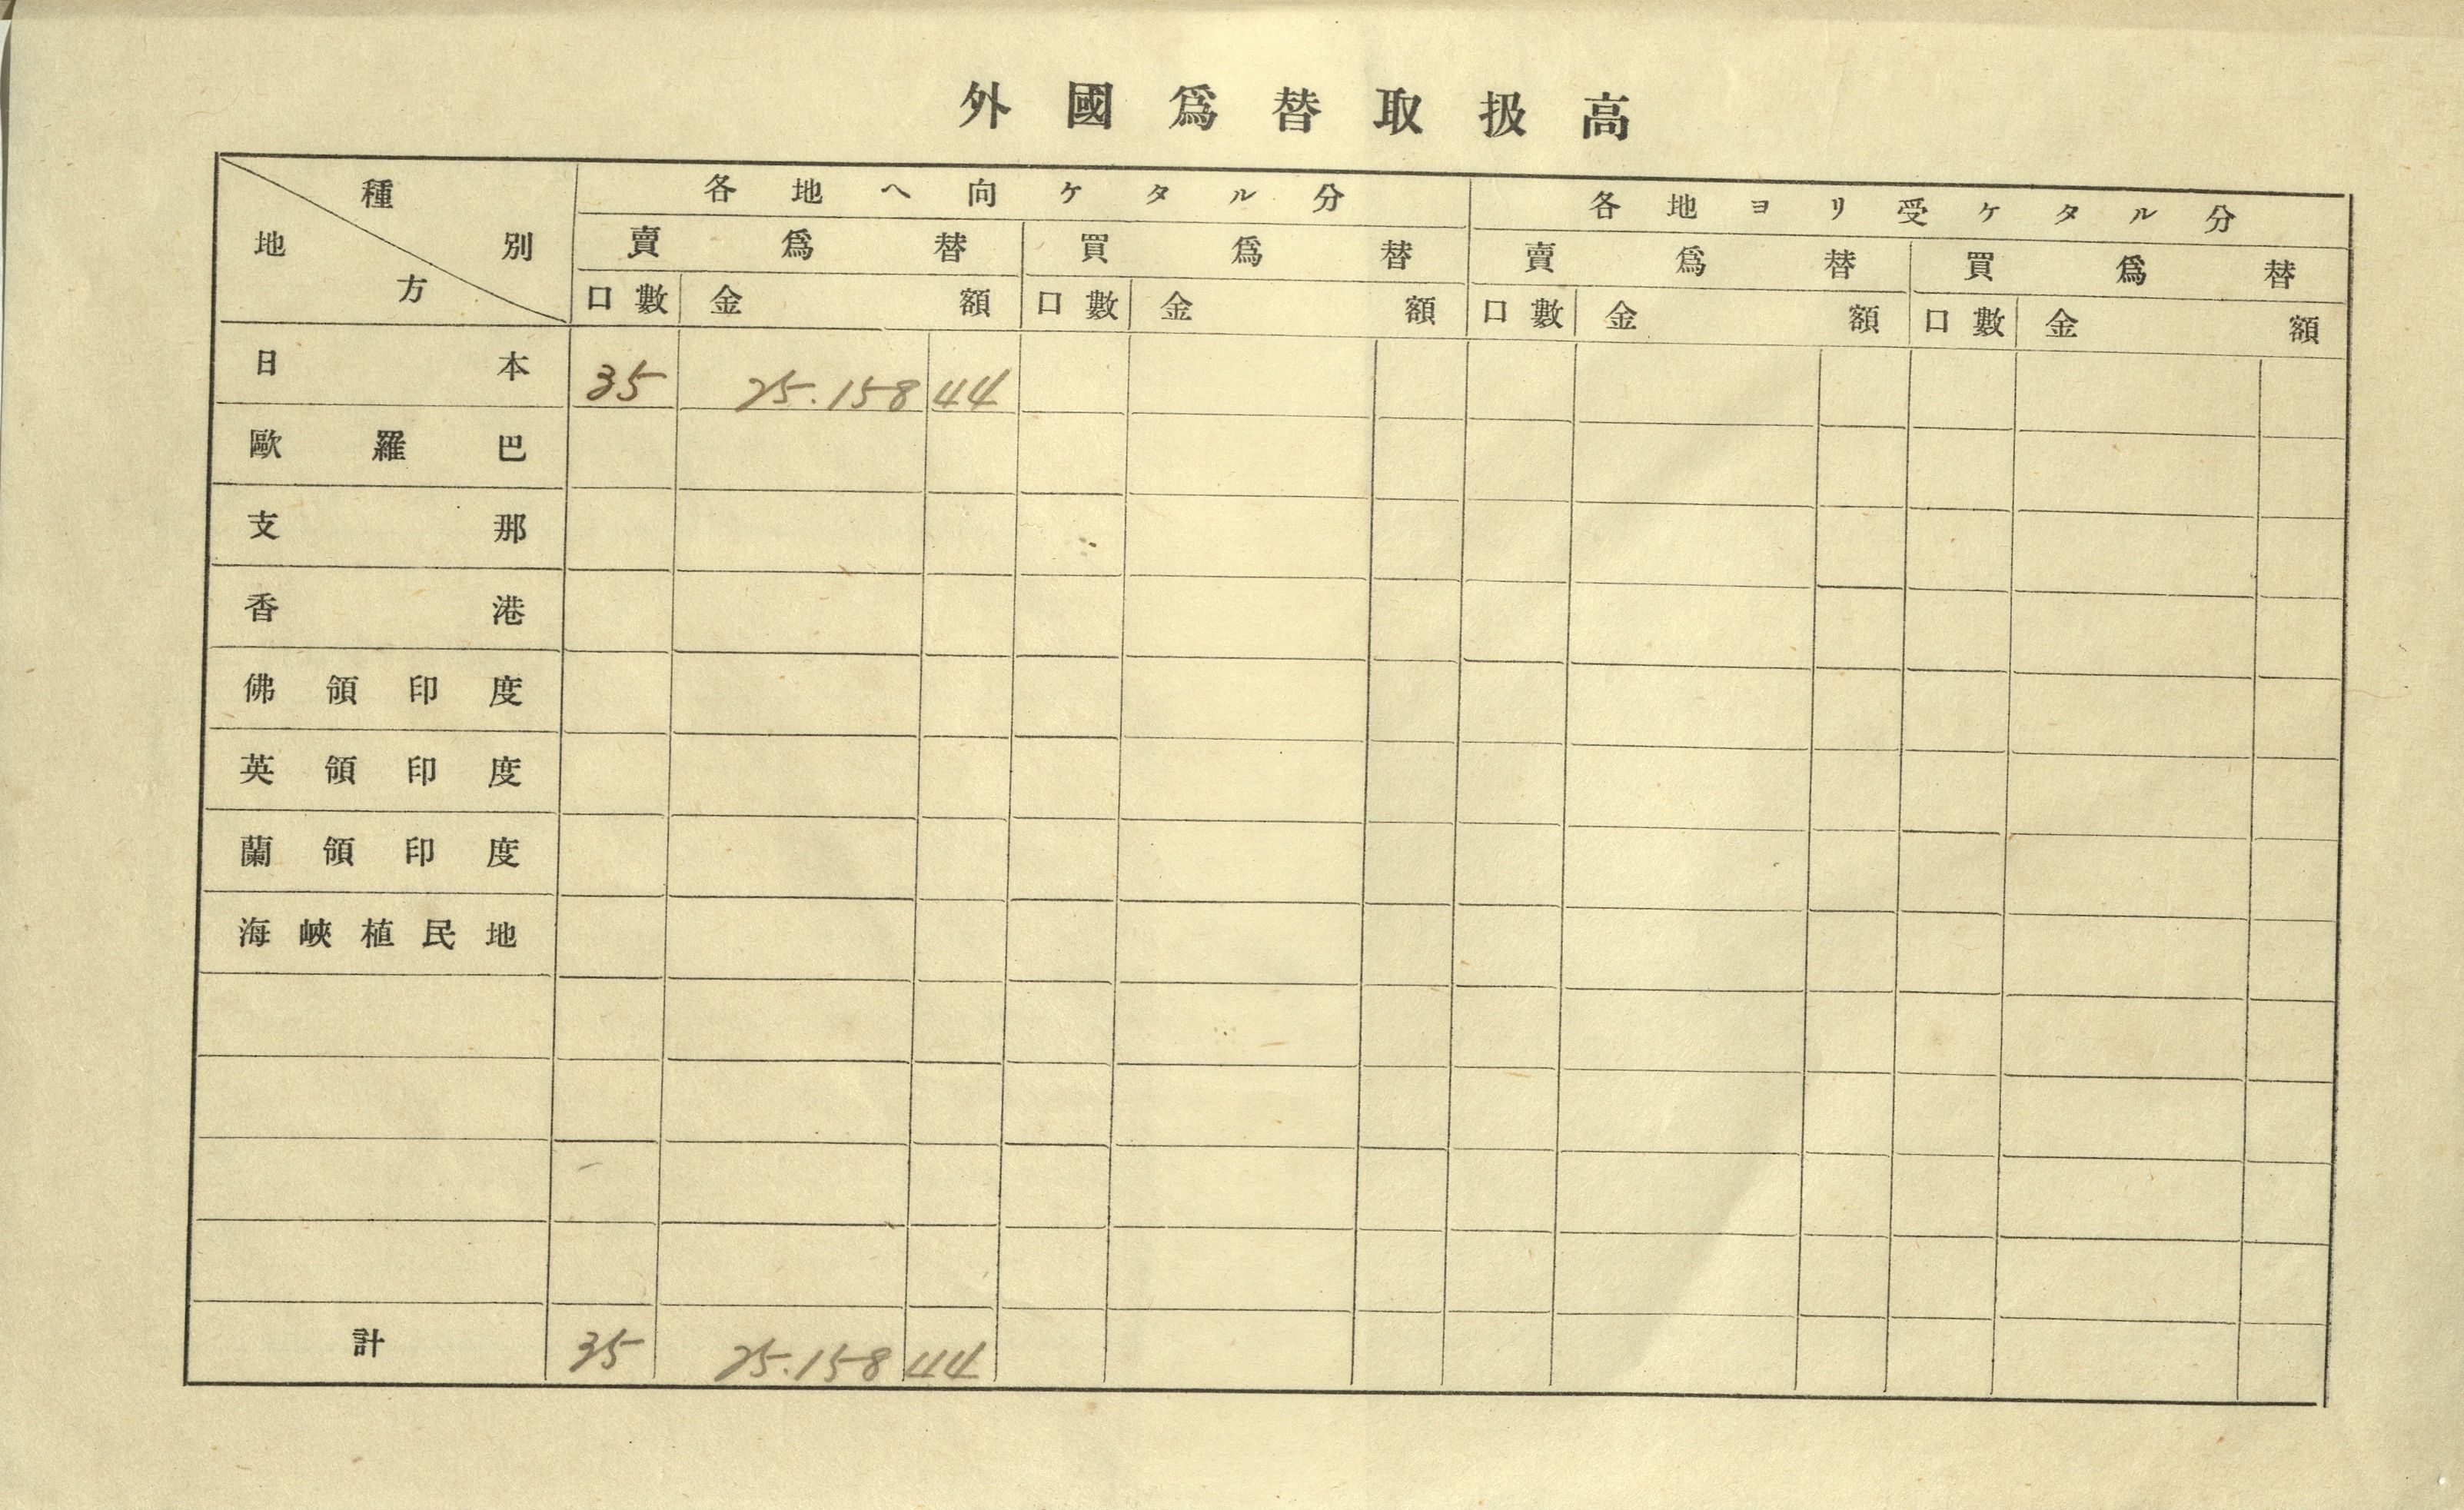 外國爲替取扱高
種別 各地ヘ向ケタル分 各地ヨリ受ケタル分
地方 賣爲替 買爲替 賣爲替 買爲替
口數 金額 口數 金額 口數 金額 口數 金額
日本 35 25.158 44
歐羅巴
支那
香港
佛領印度
英領印度
蘭領印度
海峽植民地
計 35 25.158 44